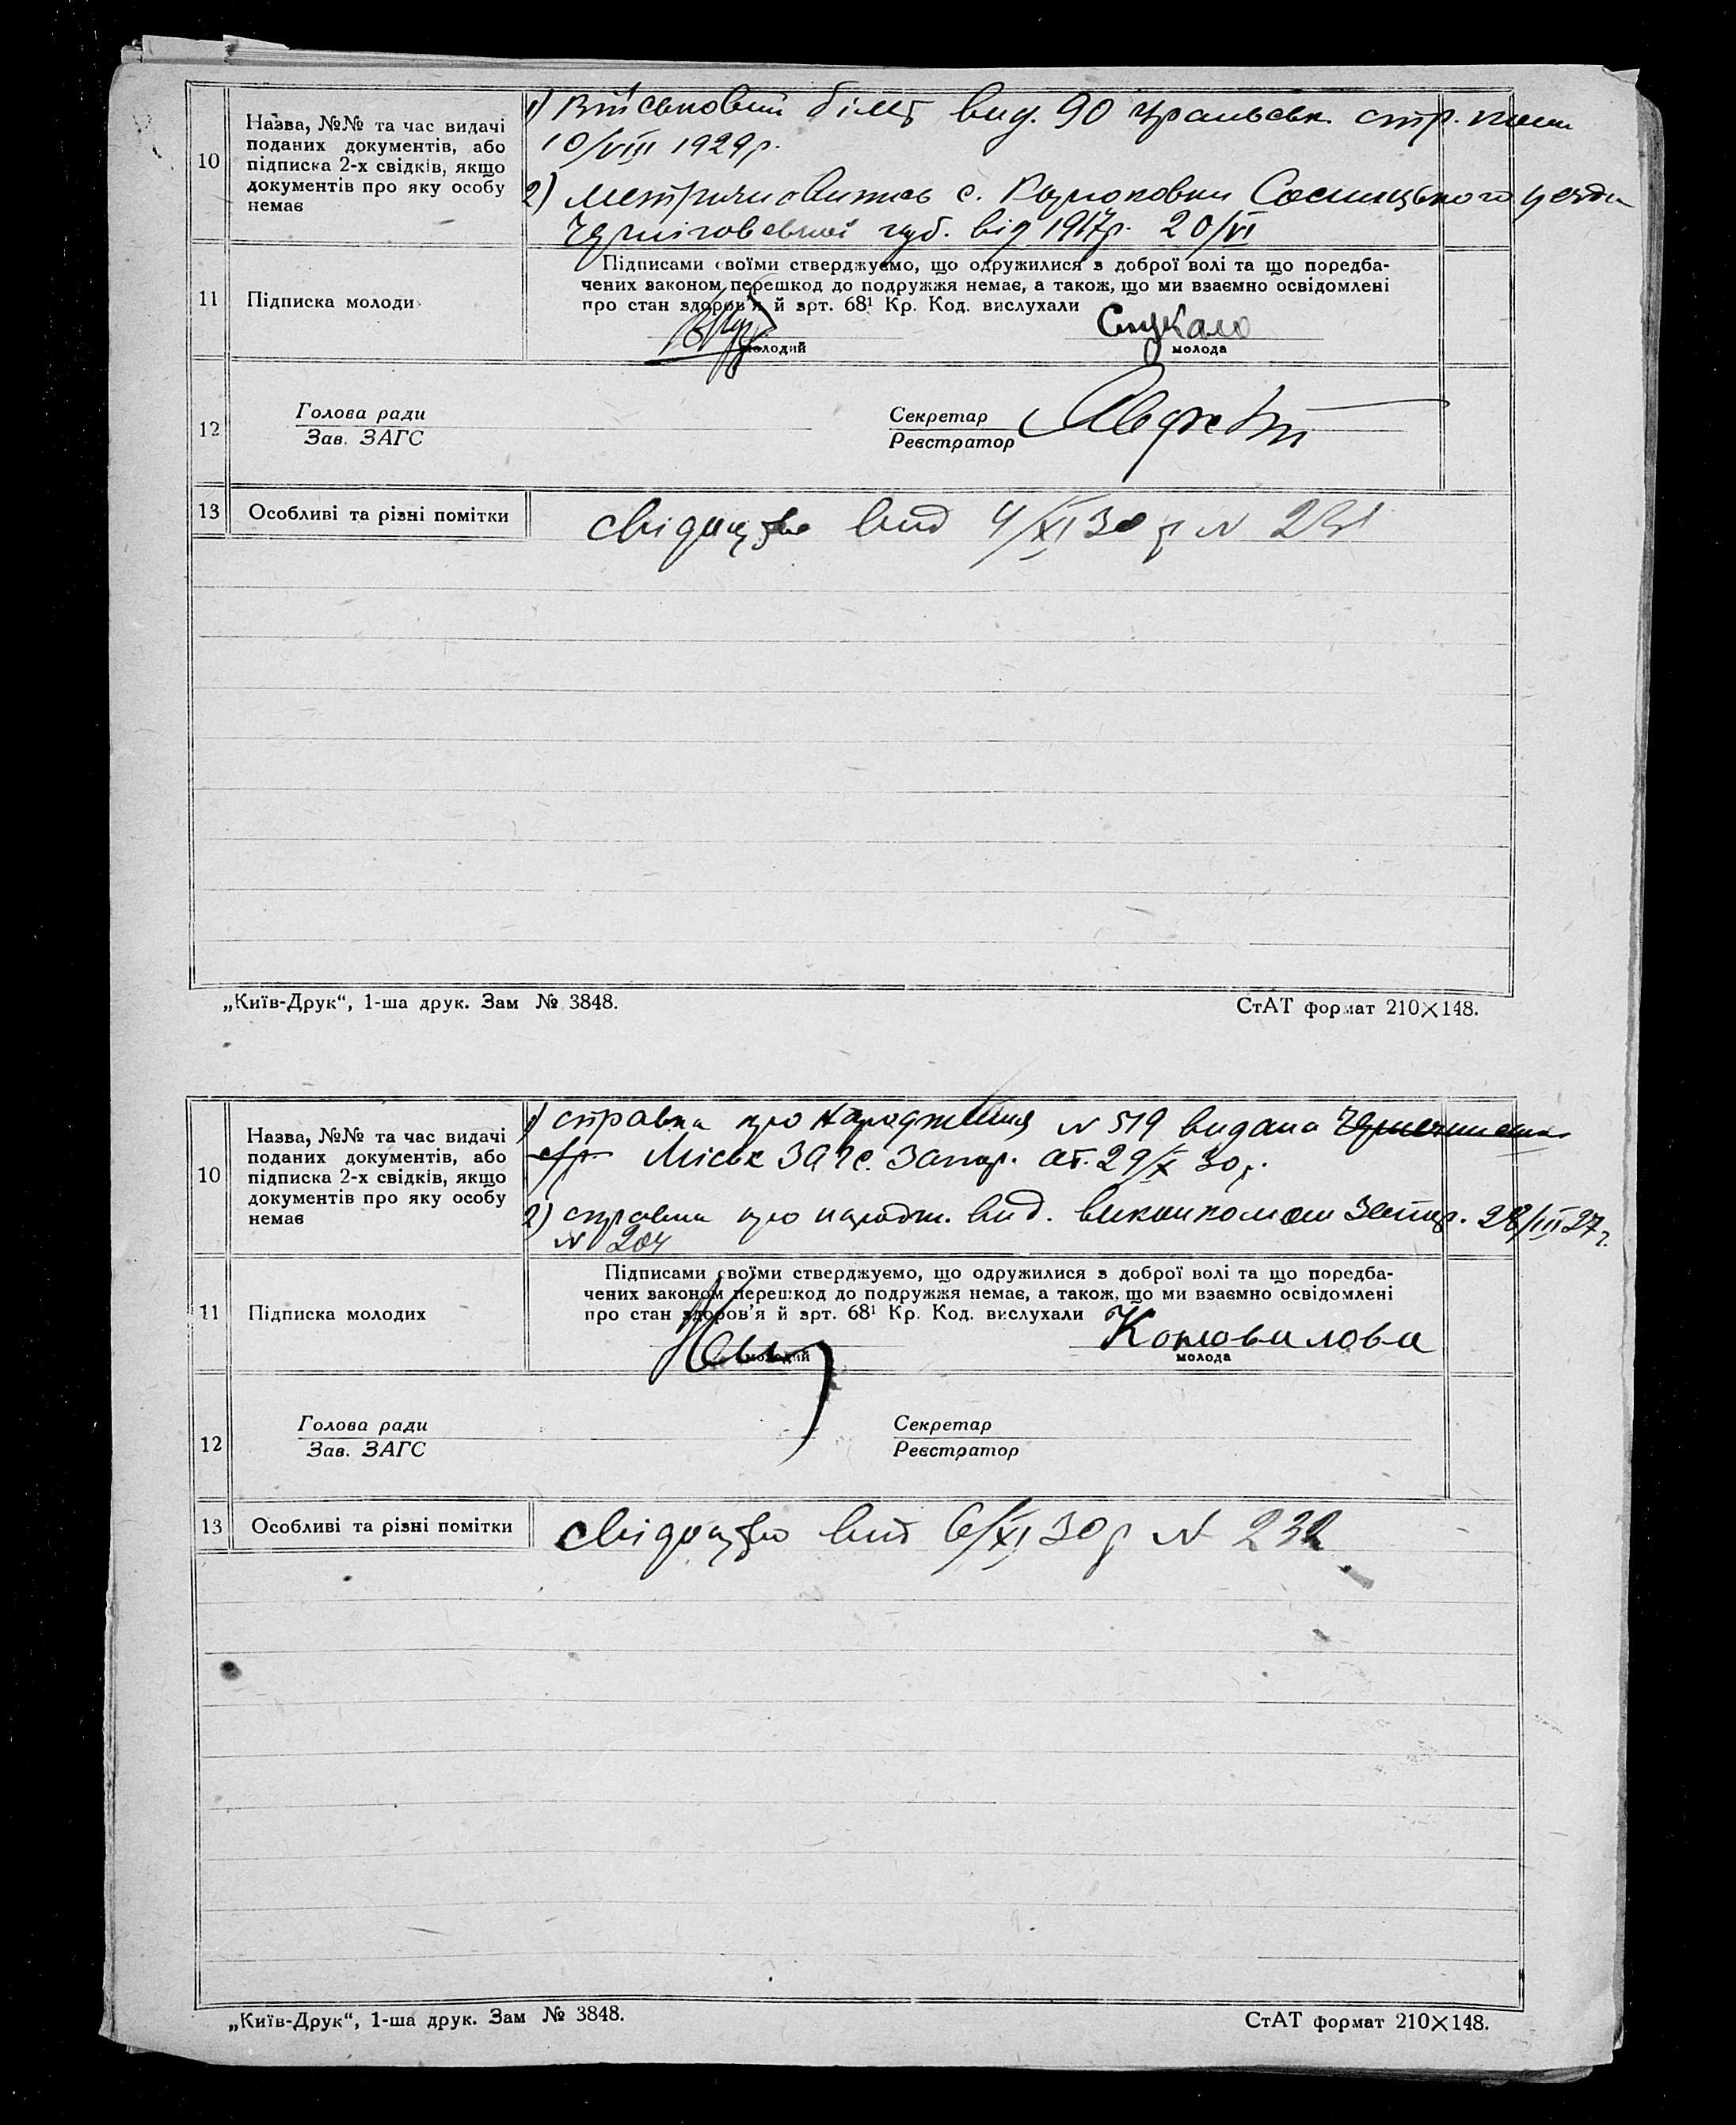 10
Назва, №№ та час видачі
поданих документів, або
підписка 2-х свідків, якщо
документів про яку особу
немає
1) Військовий білет вид. 90 Уральськ. стр.
10/VIII 1929р.
2) с. Сосницького уезда
Черніговської губ. від 1917р. 20/VI
11
Підписка молоди
Підписами своїми стверджуємо, що одружилися з доброї волі та що поредба-
чених законом перешкод до подружжя немає, а також, що ми взаємно освідомлені
про стан здоров'я й арт. 68¹ Кр. Код. вислухали
молодий
молода
12
Голова ради
Зав. ЗАГС
Секретар
Реєстратор
13
Особливі та різні помітки
свідоцтво вид 4/XI 30 р N 231
„Київ-Друк“, 1-ша друк. Зам № 3848.
СтАТ формат 210×148.
10
Назва, №№ та час видачі
поданих документів, або
підписка 2-х свідків, якщо
документів про яку особу
немає
1) справка про народження N 519 видана
Міськ ЗАГС. Запор. от. 29/X 30 р.
2) справка про народж. вид. виконкомом 28/III 27 г.
N 204
11
Підписка молодих
Підписами своїми стверджуємо, що одружилися з доброї волі та що поредба-
чених законом перешкод до подружжя немає, а також, що ми взаємно освідомлені
про стан здоров'я й арт. 68¹ Кр. Код. вислухали
молодий
Коновалова
молода
12
Голова ради
Зав. ЗАГС
Секретар
Реєстратор
13
Особливі та різні помітки
свідоцтво вид 6/XI 30 р N 232
„Київ-Друк“, 1-ша друк. Зам № 3848.
СтАТ формат 210×148.